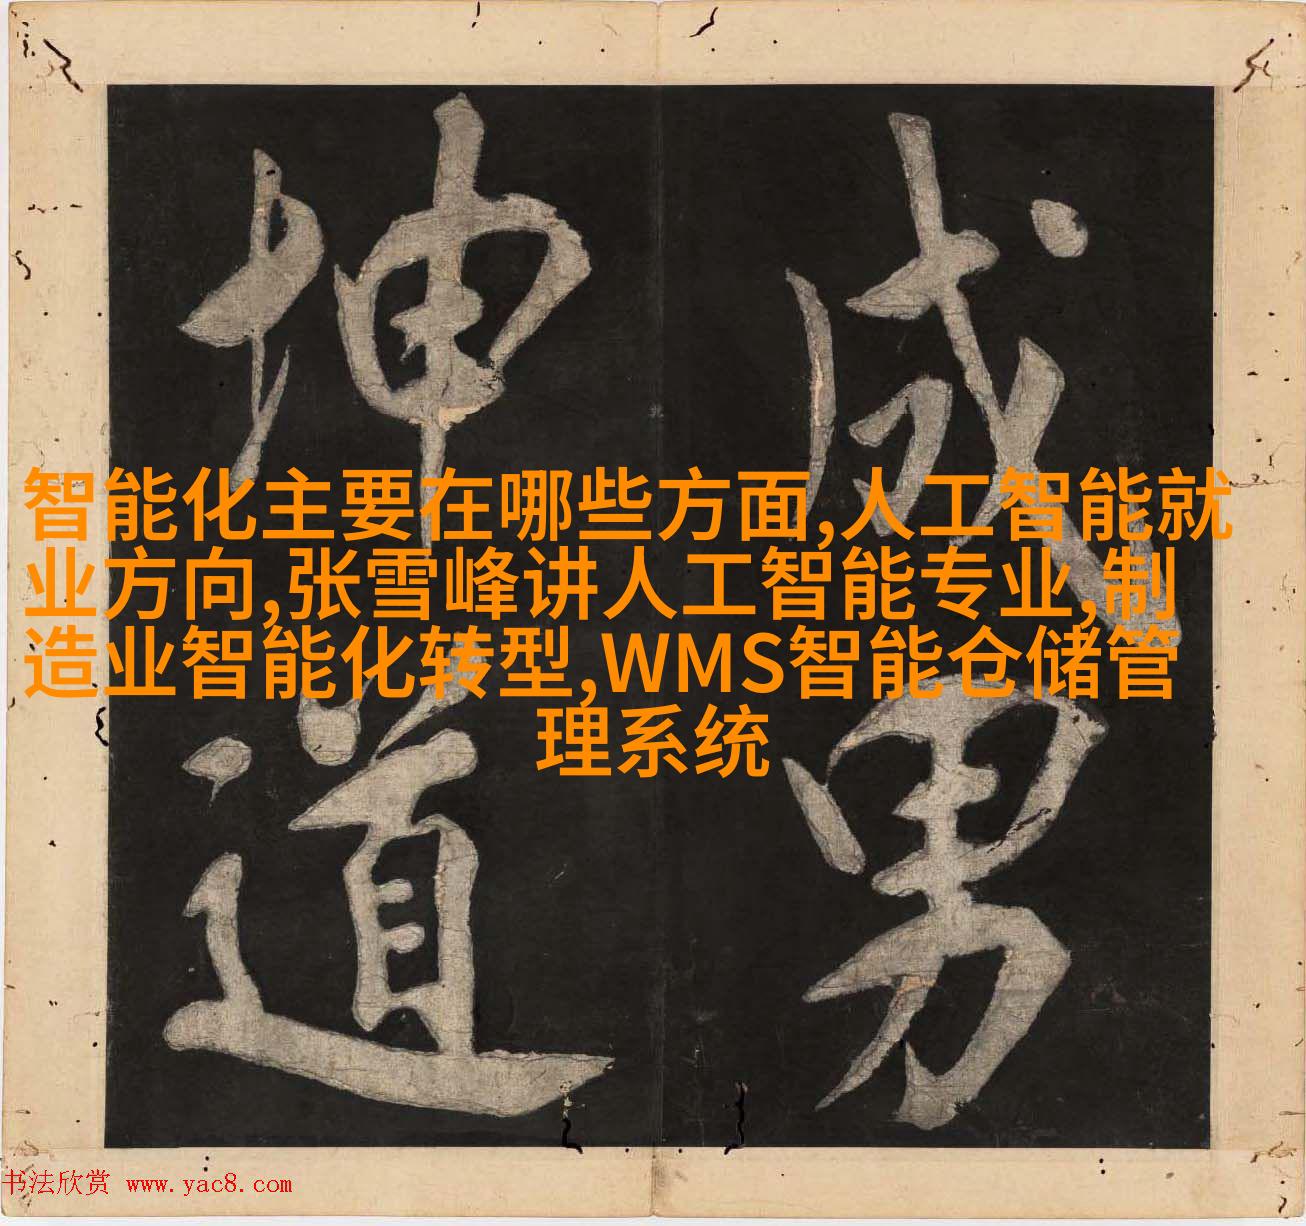 成男
坤道
智能化主要在哪些方面,人工智能就
业方向,张雪峰讲人工智能专业,制
造业智能化转型,WMS智能仓储管
理系统
书法欣赏 www.yac8.com